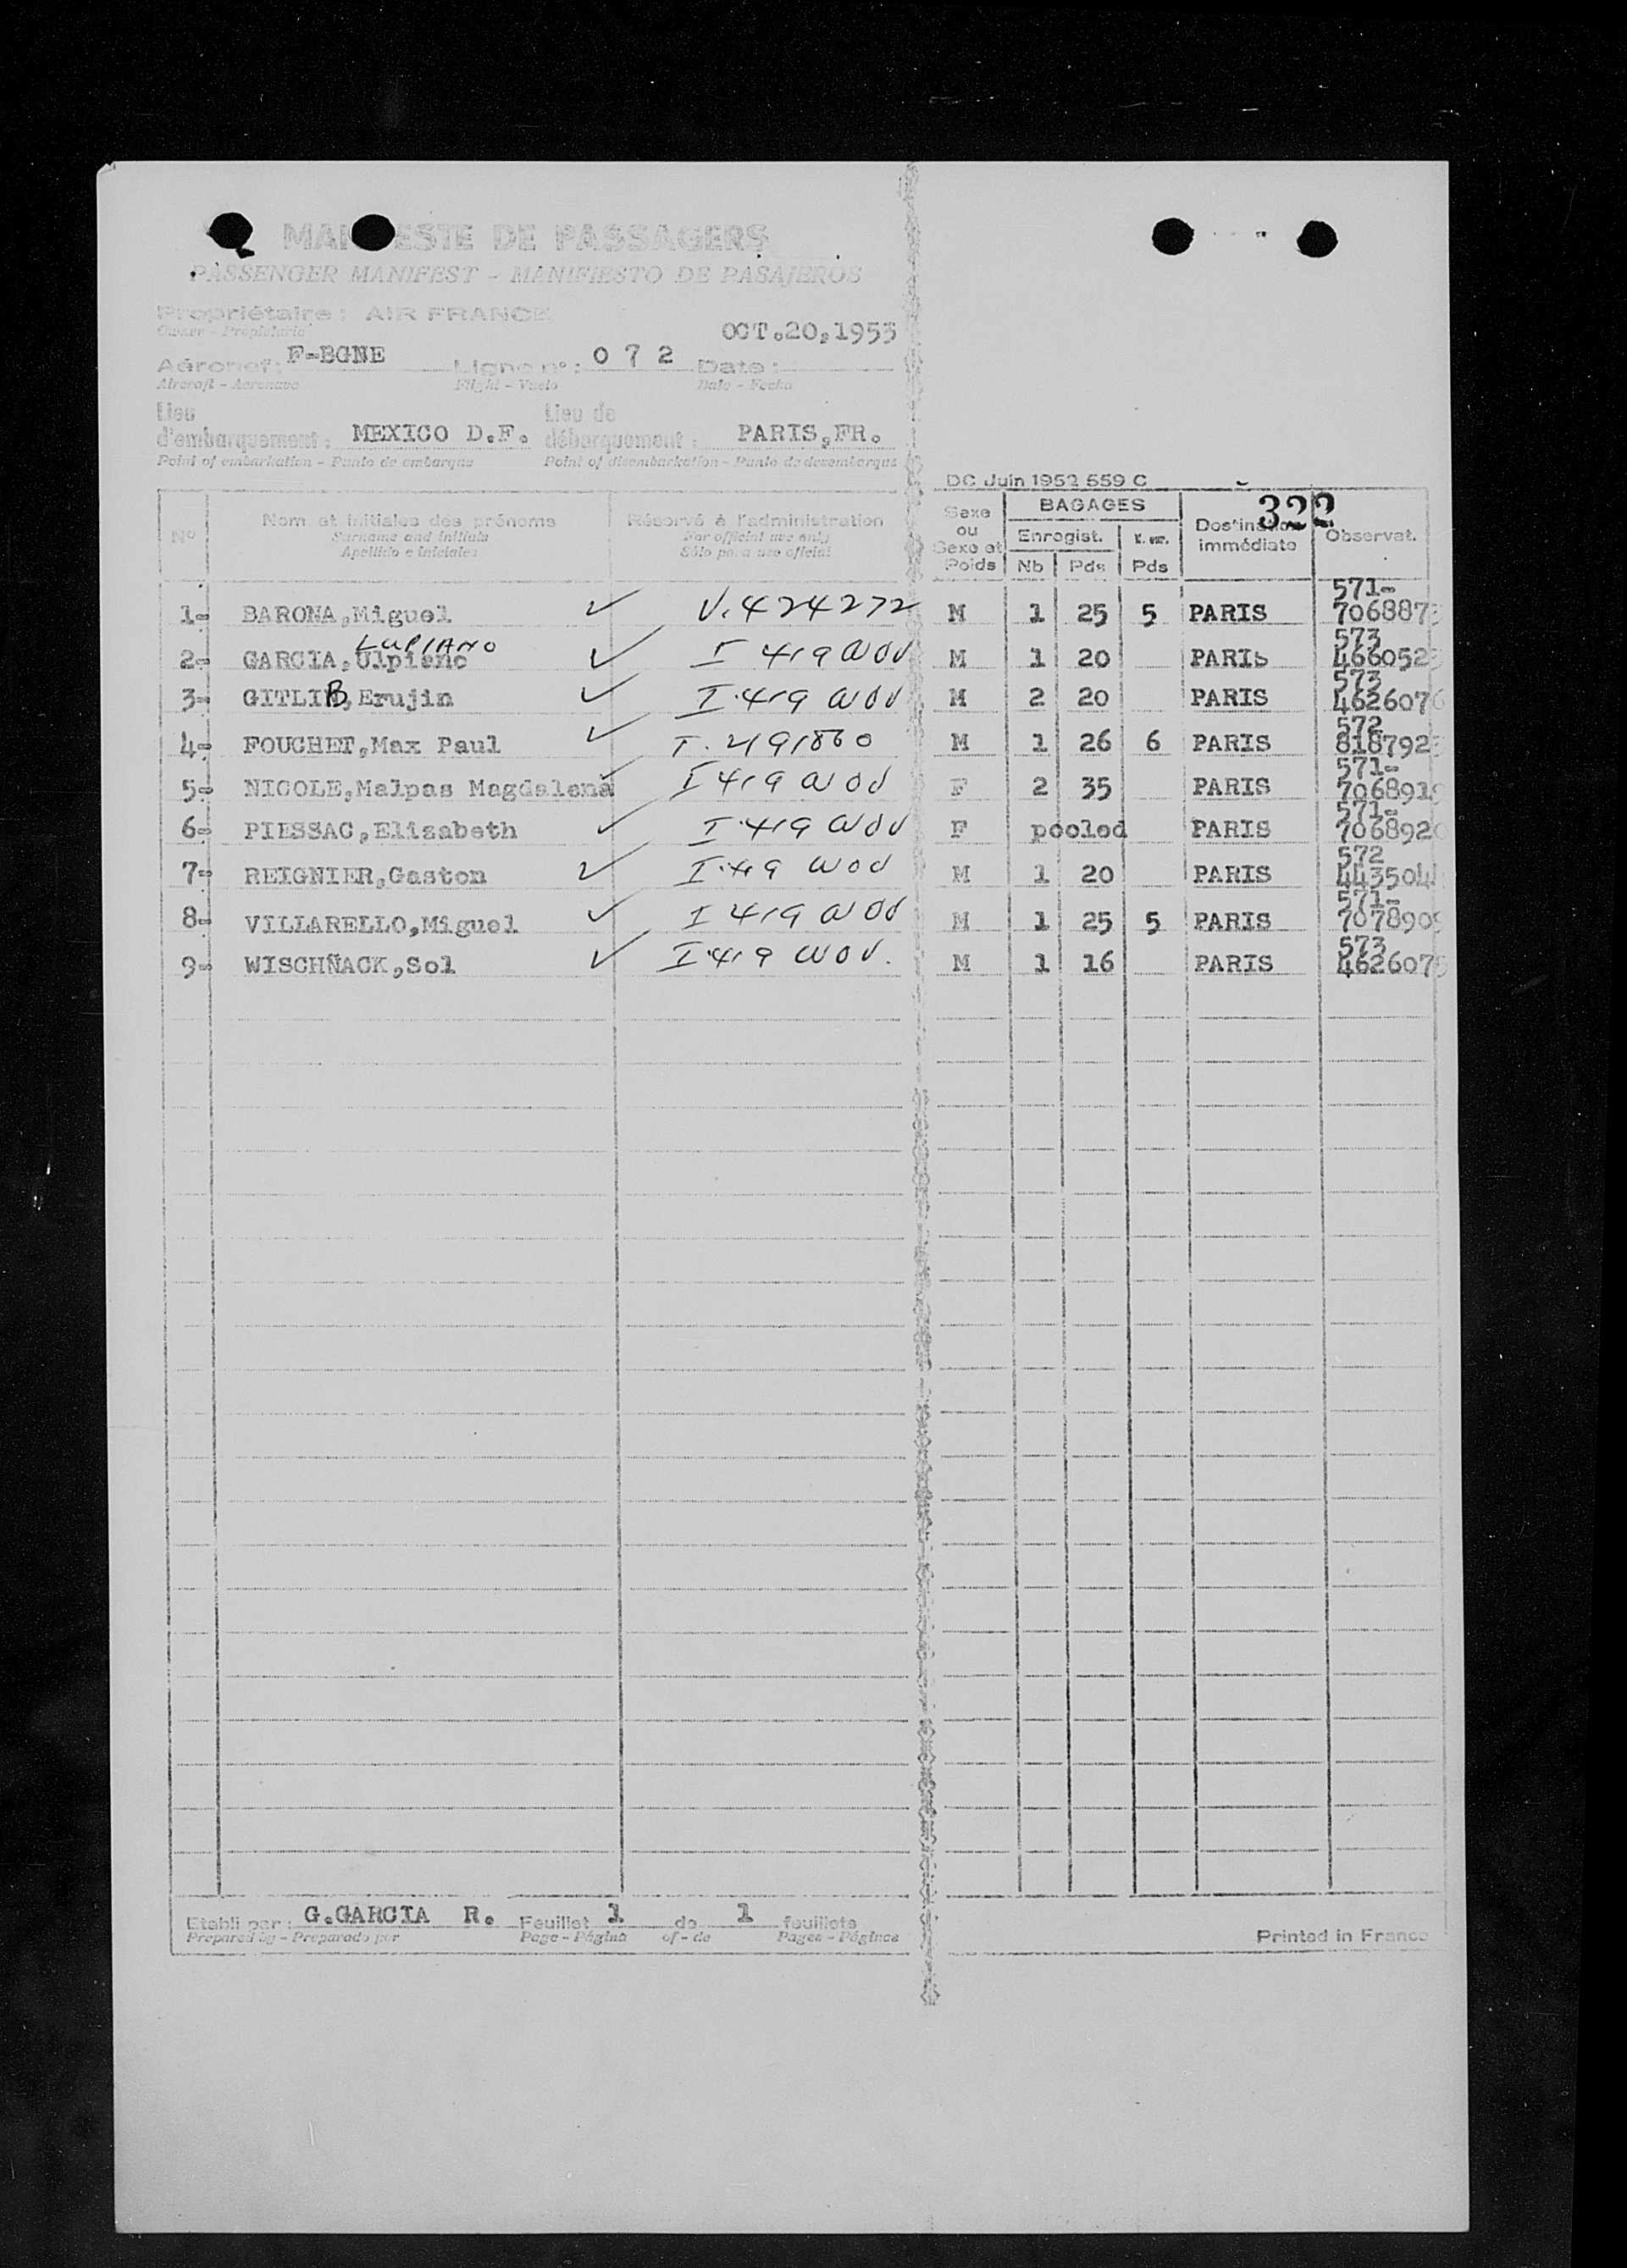 MANIFESTE DE PASSAGERS
PASSENGER MANIFEST - MANIFIESTO DE PASAJEROS
Propriétaire : AIR FRANCE
Owner - Propietario
OCT.20,1953
Aéronef : F-BGNE Ligne nº : 0 7 2 Date :
Aircraft - Aeronave Flight - Vuelo Date - Fecha
Lieu d'embarquement : MEXICO D.F. Lieu de débarquement : PARIS,FR.
Point of embarkation - Punto de embarque Point of disembarkation - Punto de desembarque
DC Juin 1952 559 C
322
Nº Nom et initiales des prénoms Réservé à l'administration Sexe ou Sexe et Poids BAGAGES Destination immédiate Observat.
Surname and initials For official use only Enregist.
Apellido e iniciales Sólo para uso oficial Nb Pds Pds
1- BARONA,Miguel ✓ V.424272 M 1 25 5 PARIS 571- 706887
2- GARCIA,Ulpiano LUPIANO ✓ I 419 M 1 20 PARIS 573 466052
3- GITLIB,Erujin ✓ I.419 M 2 20 PARIS 573 4626076
4- FOUCHET,Max Paul ✓ M 1 26 6 PARIS 572 818792
5- NICOLE,Malpas Magdalena ✓ I 419 F 2 35 PARIS 571- 706891
6- PIESSAC,Elisabeth ✓ I.419 F pooled PARIS 571- 706892
7- REIGNIER,Gaston ✓ I.419 M 1 20 PARIS 572 443504
8- VILLARELLO,Miguel ✓ I 419 M 1 25 5 PARIS 571- 707890
9- WISCHÑACK,Sol ✓ I.419 M 1 16 PARIS 573 462607
Etabli par : G.GARCIA R. Feuillet 1 de 1 feuillets
Prepared by - Preparado por Page - Página of - de Pages - Páginas
Printed in France